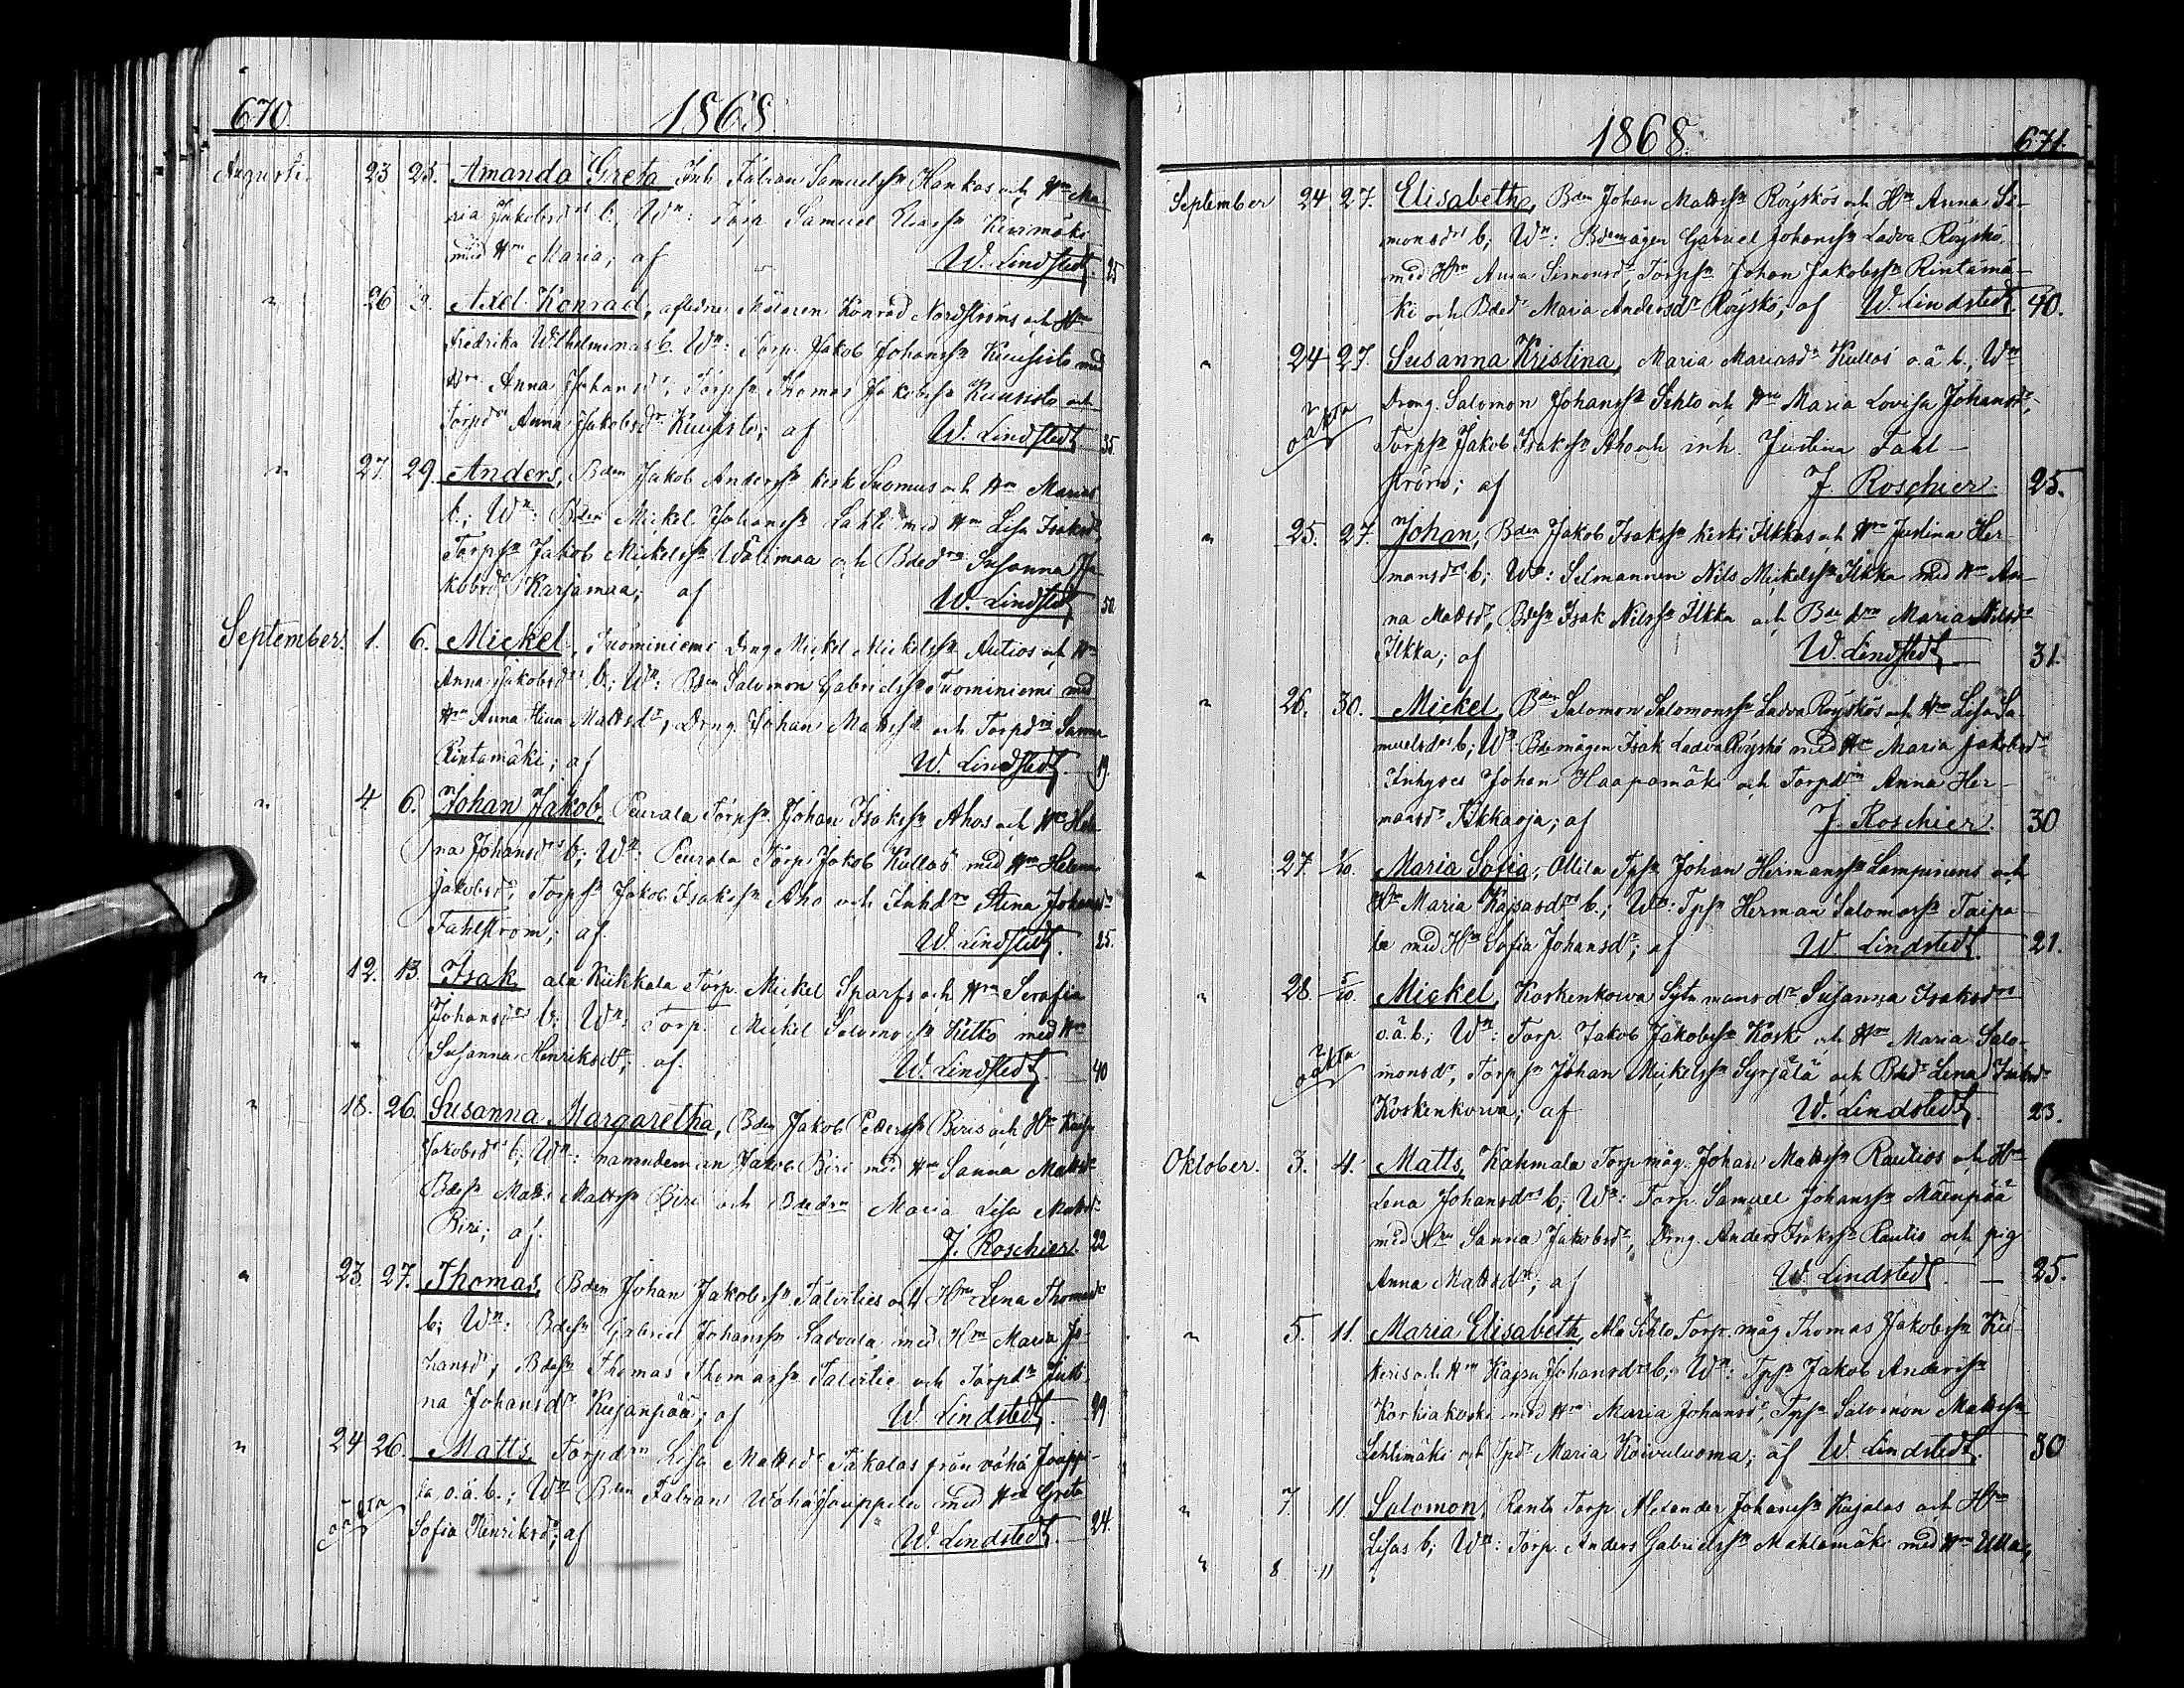 670 1868.
Augusti. 23 25. Amanda Greta Inh. Fabian Samuelssn Hankas och Hm Ma-
ria Jakobsdrs b., Wn: Torp. Samuel Eliassn Kivimäki
med Hm Maria; af W. Lindstedt. 25
" 26 Axel Konrad, aflidne Målaren Konrad Nordströms och Hm
Fredrika Wilhelminas b. Wn: Torp. Jakob Johanssn Kuusisto med
Hm Anna Johansdr, Torpsn Thomas Jakobssn Kuusisto och
Torpdr Anna Jakobsdr Kuusisto; af W. Lindstedt 35.
" 27. 29. Anders, Bden Jakob Anderssn Keski Luomus och Hm Marias
b.; Wn: Bden Mickel Johanssn Lahti med Hm Lisa Isaksdr,
Torpsn Jakob Mickelssn Wälimaa och Bdedrn Susanna Ja-
kobsdr Karjamaa; af W. Lindstedt 50.
September. 1. 6. Mickel, Tuominiemi Drng Mickel Mickelssn Autios och Hm
Anna Jakobsdrs b.; Wn: Bden Salomon Gabrielssn Tuominiemi med
Hm Anna Stina Mattsdr, Drng. Johan Mattssn och Torpdrn Sanna
Rintamäki; af W. Lindstedt. 19.
" 4 6. Johan Jakob, Peurala Torpsn Johan Isakssn Ahos och Hm Hele-
na Johansdrs b; Wn: Peurala Torp. Jakob Kullas med Hm Helena
Jakobsdr, Torpsn Jakob Isakssn Aho och Inhdrn Stina Johansdr
Fahlström; af W. Lindstedt. 25.
" 12. 13. Isak, ala Kuhkala Torp. Mickel Sparfs och Hm Serafia
Johansdrs b; Wn: Torp. Mickel Salomonssn Kitko med Hm
Susanna Henriksdr; af. W. Lindstedt. 40
" 18. 26. Susanna Margaretha, Bden Jakob Peterssn Biris och Hm Kaisa
Jakobsdrs b; Wn: nämndeman Jakob Biri med Hm Sanna Mattsdr
Bdesn Matts Mattssn Biri och Bdedrn Maria Lisa Mattsdr
Biri; af. J. Roschier. 22
" 23. 27. Thomas, Bden Johan Jakobssn Talvities och Hm Lena Thomasdrs
b; Wn: Bdesn Gabriel Johanssn Ladvala med Hm Maria Jo-
hansdr, Bdesn Thomas Thomassn Talvitie och Torpdrn Justi-
na Johansdr Kujanpää; af W. Lindstedt. 29
" 24 26. Matts, Torpdrn Lisa Mattsdr Takalas från vähä Jouppi-
oäkta la, o.ä.b.; Wn Bden Fabian Wähäjouppila med Hm Greta
Sofia Henriksdr; af W. Lindstedt. 24.
1868. 671.
September 24 27. Elisabeth, Bden Johan Mattssn Röyskös och Hm Anna Si-
monsdrs b; Wn: Bdemågen Gabriel Johanssn Ladva Röyskö
med Hm Anna Simonsdr, Torpsn Johan Jakobssn Rintamä-
ki och Bdedr Maria Andersdr Röyskö; af W. Lindstedt. 40.
" 24 27. Susanna Kristina, Maria Mariasdr Kullas o.ä b., Wn
oäkta Drng. Salomon Johanssn Sihto och Hm Maria Lovisa Johansdr,
Torpsn Jakob Isakssn Aho och inh. Justina Fahl-
ström; af J. Roschier. 25.
" 25. 27. Johan, Bden Jakob Isakssn Keski Ilkkas och Hm Justina Her-
mansdrs b; Wn: Silmannen Nils Mickelssn Ilkka med Hm An-
na Mattsdr, Bdesn Isak Nilssn Ilkka och Bde Hm Maria Nilsdr
Ilkka; af W. Lindstedt 31.
" 26. 30. Mickel, Bden Salomon Salomonssn Ladva Röyskös och Hm Lisa Sa-
muelsdrs b; Wn Bdemågen Isak Ladva Röyskö med Hm Maria Jakobsdr
Inhyses Johan Haapamäki och Torpdrn Anna Her-
mansdr Ilkkaoja; af J. Roschier. 30
" 27. /10. Maria Sofia, Ollila Tpsn Johan Hermanssn Lampinens och
Hm Maria Kajsasdrs b.; Wn: Tpsn Herman Salomonssn Taipa-
le med Hm Sofia Johansdr; af W. Lindstedt. 21.
" 28. 5/10. Mickel, Koskenkorva Sytn mans dr Susanna Isaksdrs
o.ä.b; Wn: Torp. Jakob Jakobssn Koski och Hm Maria Salo-
oäkta monsdr, Torpsn Johan Mickelssn Syrjälä och Bdedr Lena Isaksdr
Koskenkorva; af W. Lindstedt. 23.
Oktober. 3. 4. Matts, Kahmala Torp måg. Johan Mattssn Rautios och Hm
Lena Johansdrs b; Wn: Torp. Samuel Johanssn Mäenpää
med Hm Sanna Jakobsdr, Drng. Anders Isakssn Rautio och pig
Anna Mattsdr; af W. Lindstedt. 25.
" 5. 11. Maria Elisabeth, Ala Sihto Torp. måg Thomas Jakobssn Kii-
keris och Hm Kajsa Johansdrs b; Wn: Tpsn Jakob Anderssn
Korkiakoski med Hm Maria Johansdr, Tpsn Salomon Mattssn
Lehtimäki och Tpdr Maria Koivuluoma; af W. Lindstedt. 30
" 7. 11. Salomon, Ranta Torp. Alexander Johanssn Kujalas och Hm
Lisas b; Wn: Torp. Anders Gabrielssn Mahlamäki med Hm Ulla,
" 8 11